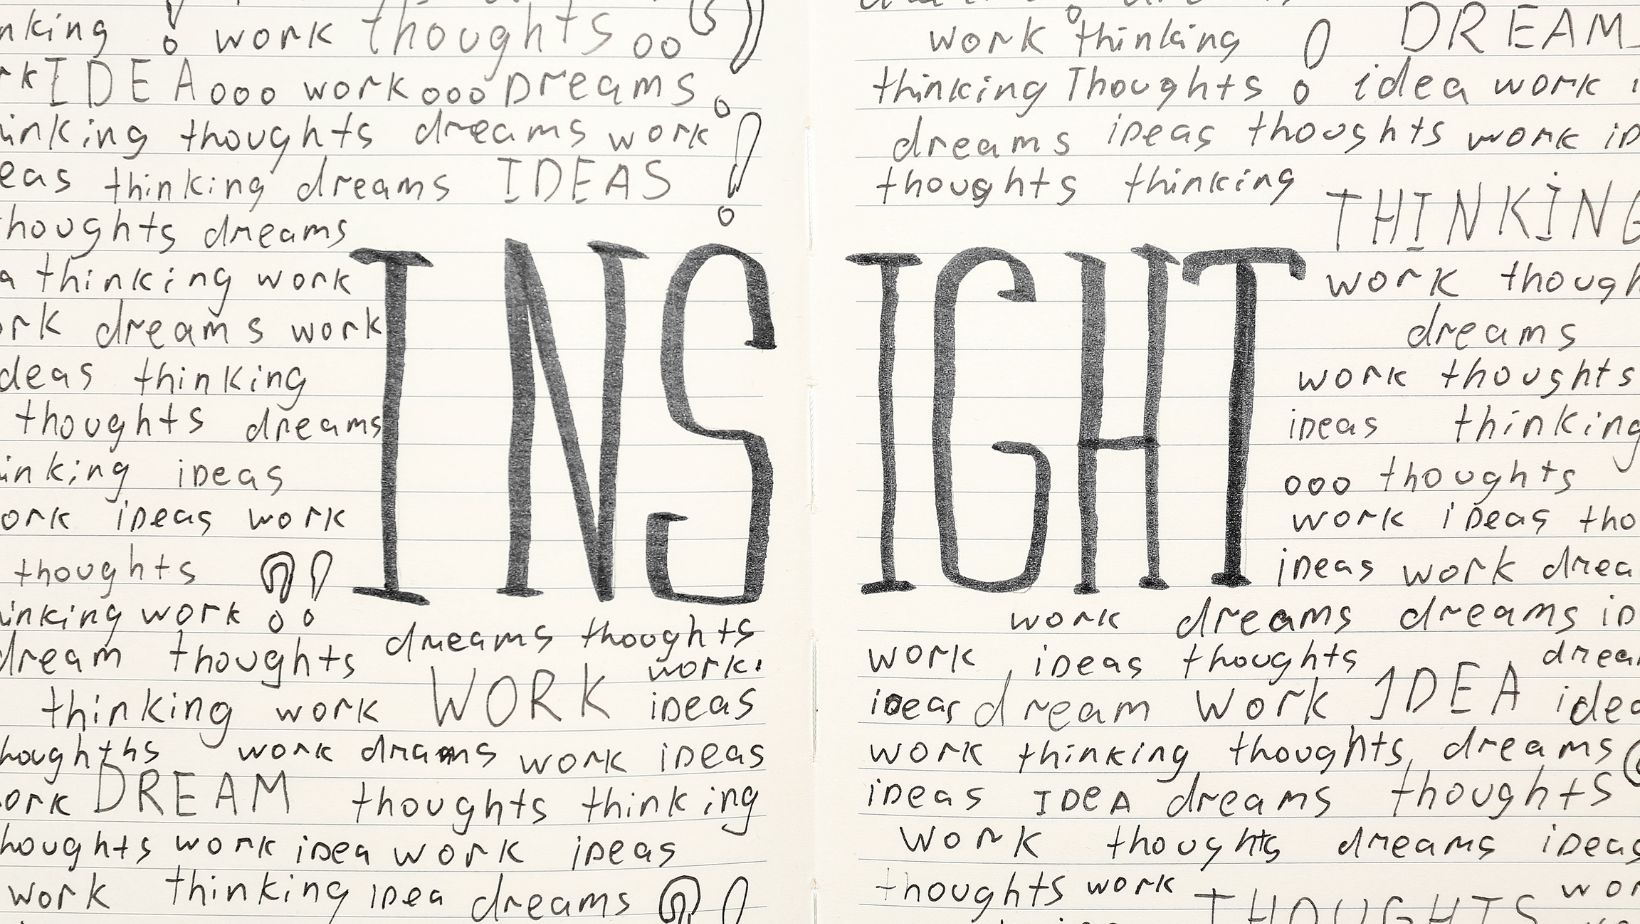 nking ! work thoughts oo
rk IDEA ooo work ooo Dreams
inking thoughts dreams work
eas thinking dreams IDEAS !
houghts dreams
a thinking work
ork dreams work
deas thinking
thoughts dreams
inking ideas
ork ideas work
thoughts
inking work
dreams thoughts
dream thoughts
work.
thinking work WORK ideas
houghths work dreams work ideas
ork DREAM thoughts thinking
houghts work idea work ideas
work thinking idea dreams
INSIGHT
work thinking DREAM
thinking Thoughts o idea work i
dreams ideas thoughts work id
thoughts thinking
THINKING
work though
dreams
work thoughts
ideas thinking
ooo thoughts
work ideas tho
ideas work drea
work dreams dreams id
work, ideas thoughts dream
ideas dream Work IDEA idea
work thinking thoughts, dreams
ideas IDEA dreams thoughts
Work thoughts dreams ideas
thoughts work THOUGHTS wor